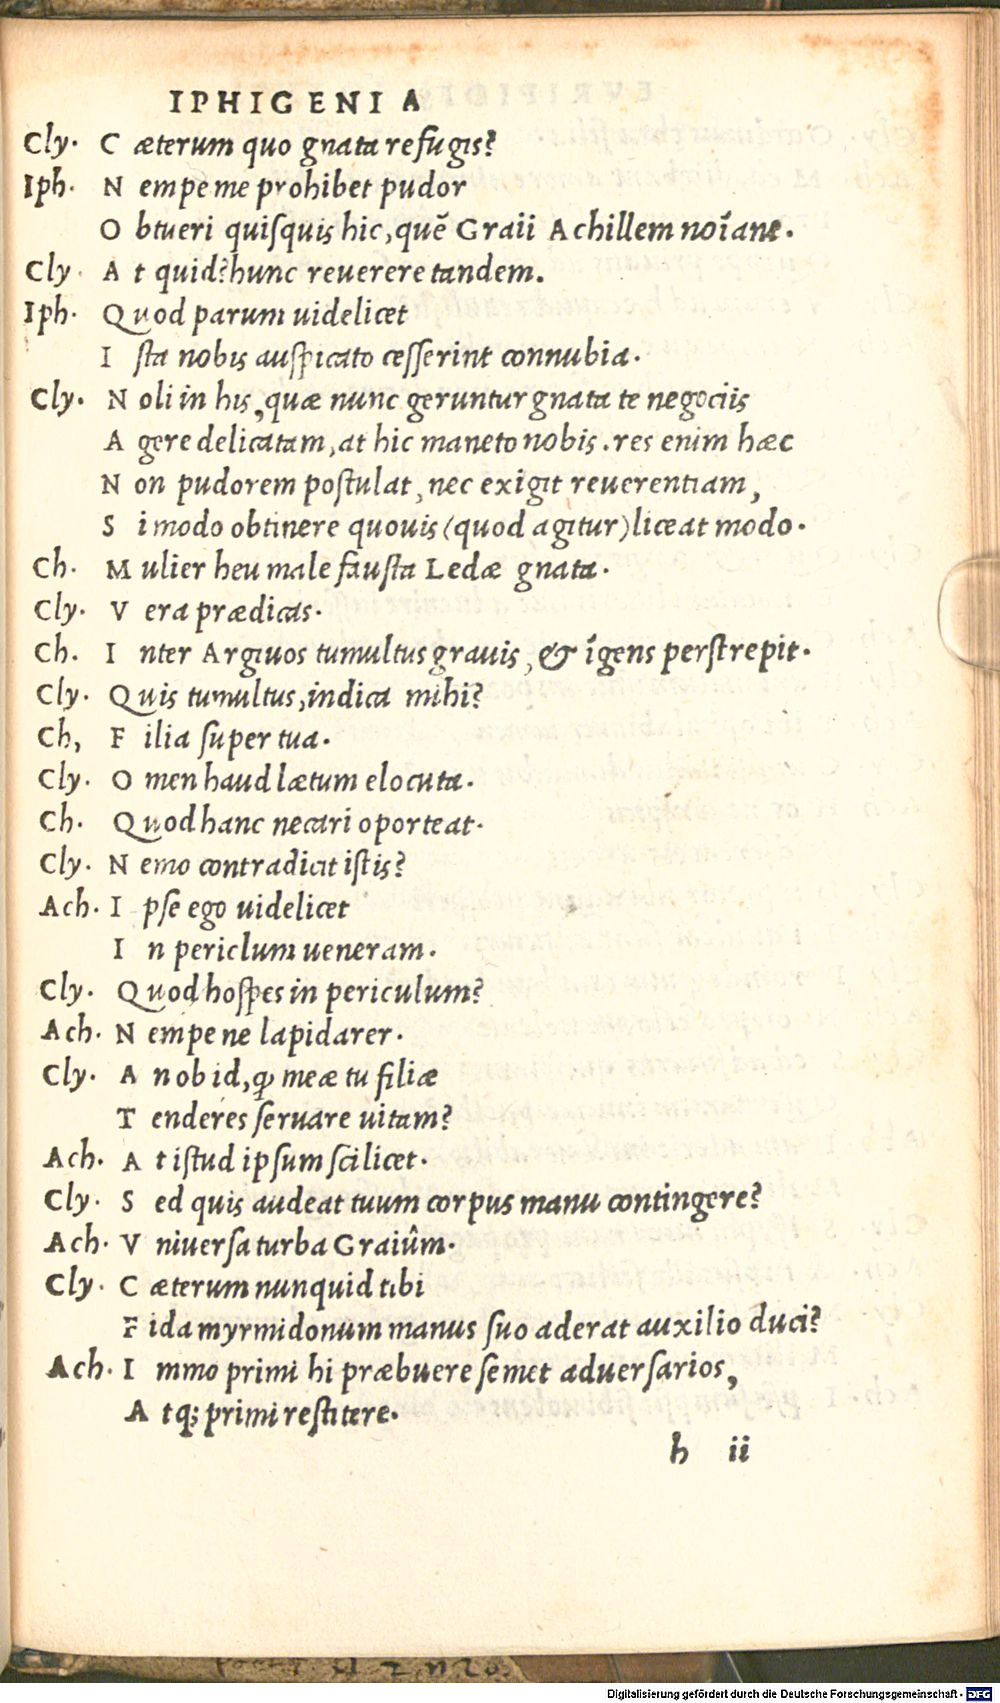 IPHIGENIA
Cly. Cæterum quo gnata refugis?
Iph. Nempe me prohibet pudor
Obtueri quisquis hic, quẽ Graii Achillem noĩant.
Cly. At quid? hunc reuerere tandem.
Iph. Quod parum uidelicet
Ista nobis auspicato cesserint connubia.
Cly. Noli in his, quæ nunc geruntur gnata te negociis
Agere delicatam, at hic maneto nobis. res enim hæc
Non pudorem postulat, nec exigit reuerentiam,
Si modo obtinere quouis (quod agitur) liceat modo.
Ch. Mulier heu male fausta Ledæ gnata.
Cly. Vera prædicas.
Ch. Inter Argiuos tumultus grauis, & ĩgens perstrepit.
Cly. Quis tumultus, indica mihi?
Ch, Filia super tua.
Cly. Omen haud lætum elocuta.
Ch. Quod hanc necari oporteat.
Cly. Nemo contradicit istis?
Ach. Ipse ego uidelicet
In periclum ueneram.
Cly. Quod hospes in periculum?
Ach. Nempe ne lapidarer.
Cly. An ob id, ꝙ meæ tu filiæ
Tenderes seruare uitam?
Ach. At istud ipsum scilicet.
Cly. Sed quis audeat tuum corpus manu contingere?
Ach. Vniuersa turba Graiûm.
Cly. Cæterum nunquid tibi
Fida myrmidonum manus suo aderat auxilio duci?
Ach. Immo primi hi præbuere semet aduersarios,
Atq; primi restitere.
h ii
Digitalisierung gefördert durch die Deutsche Forschungsgemeinschaft - DFG